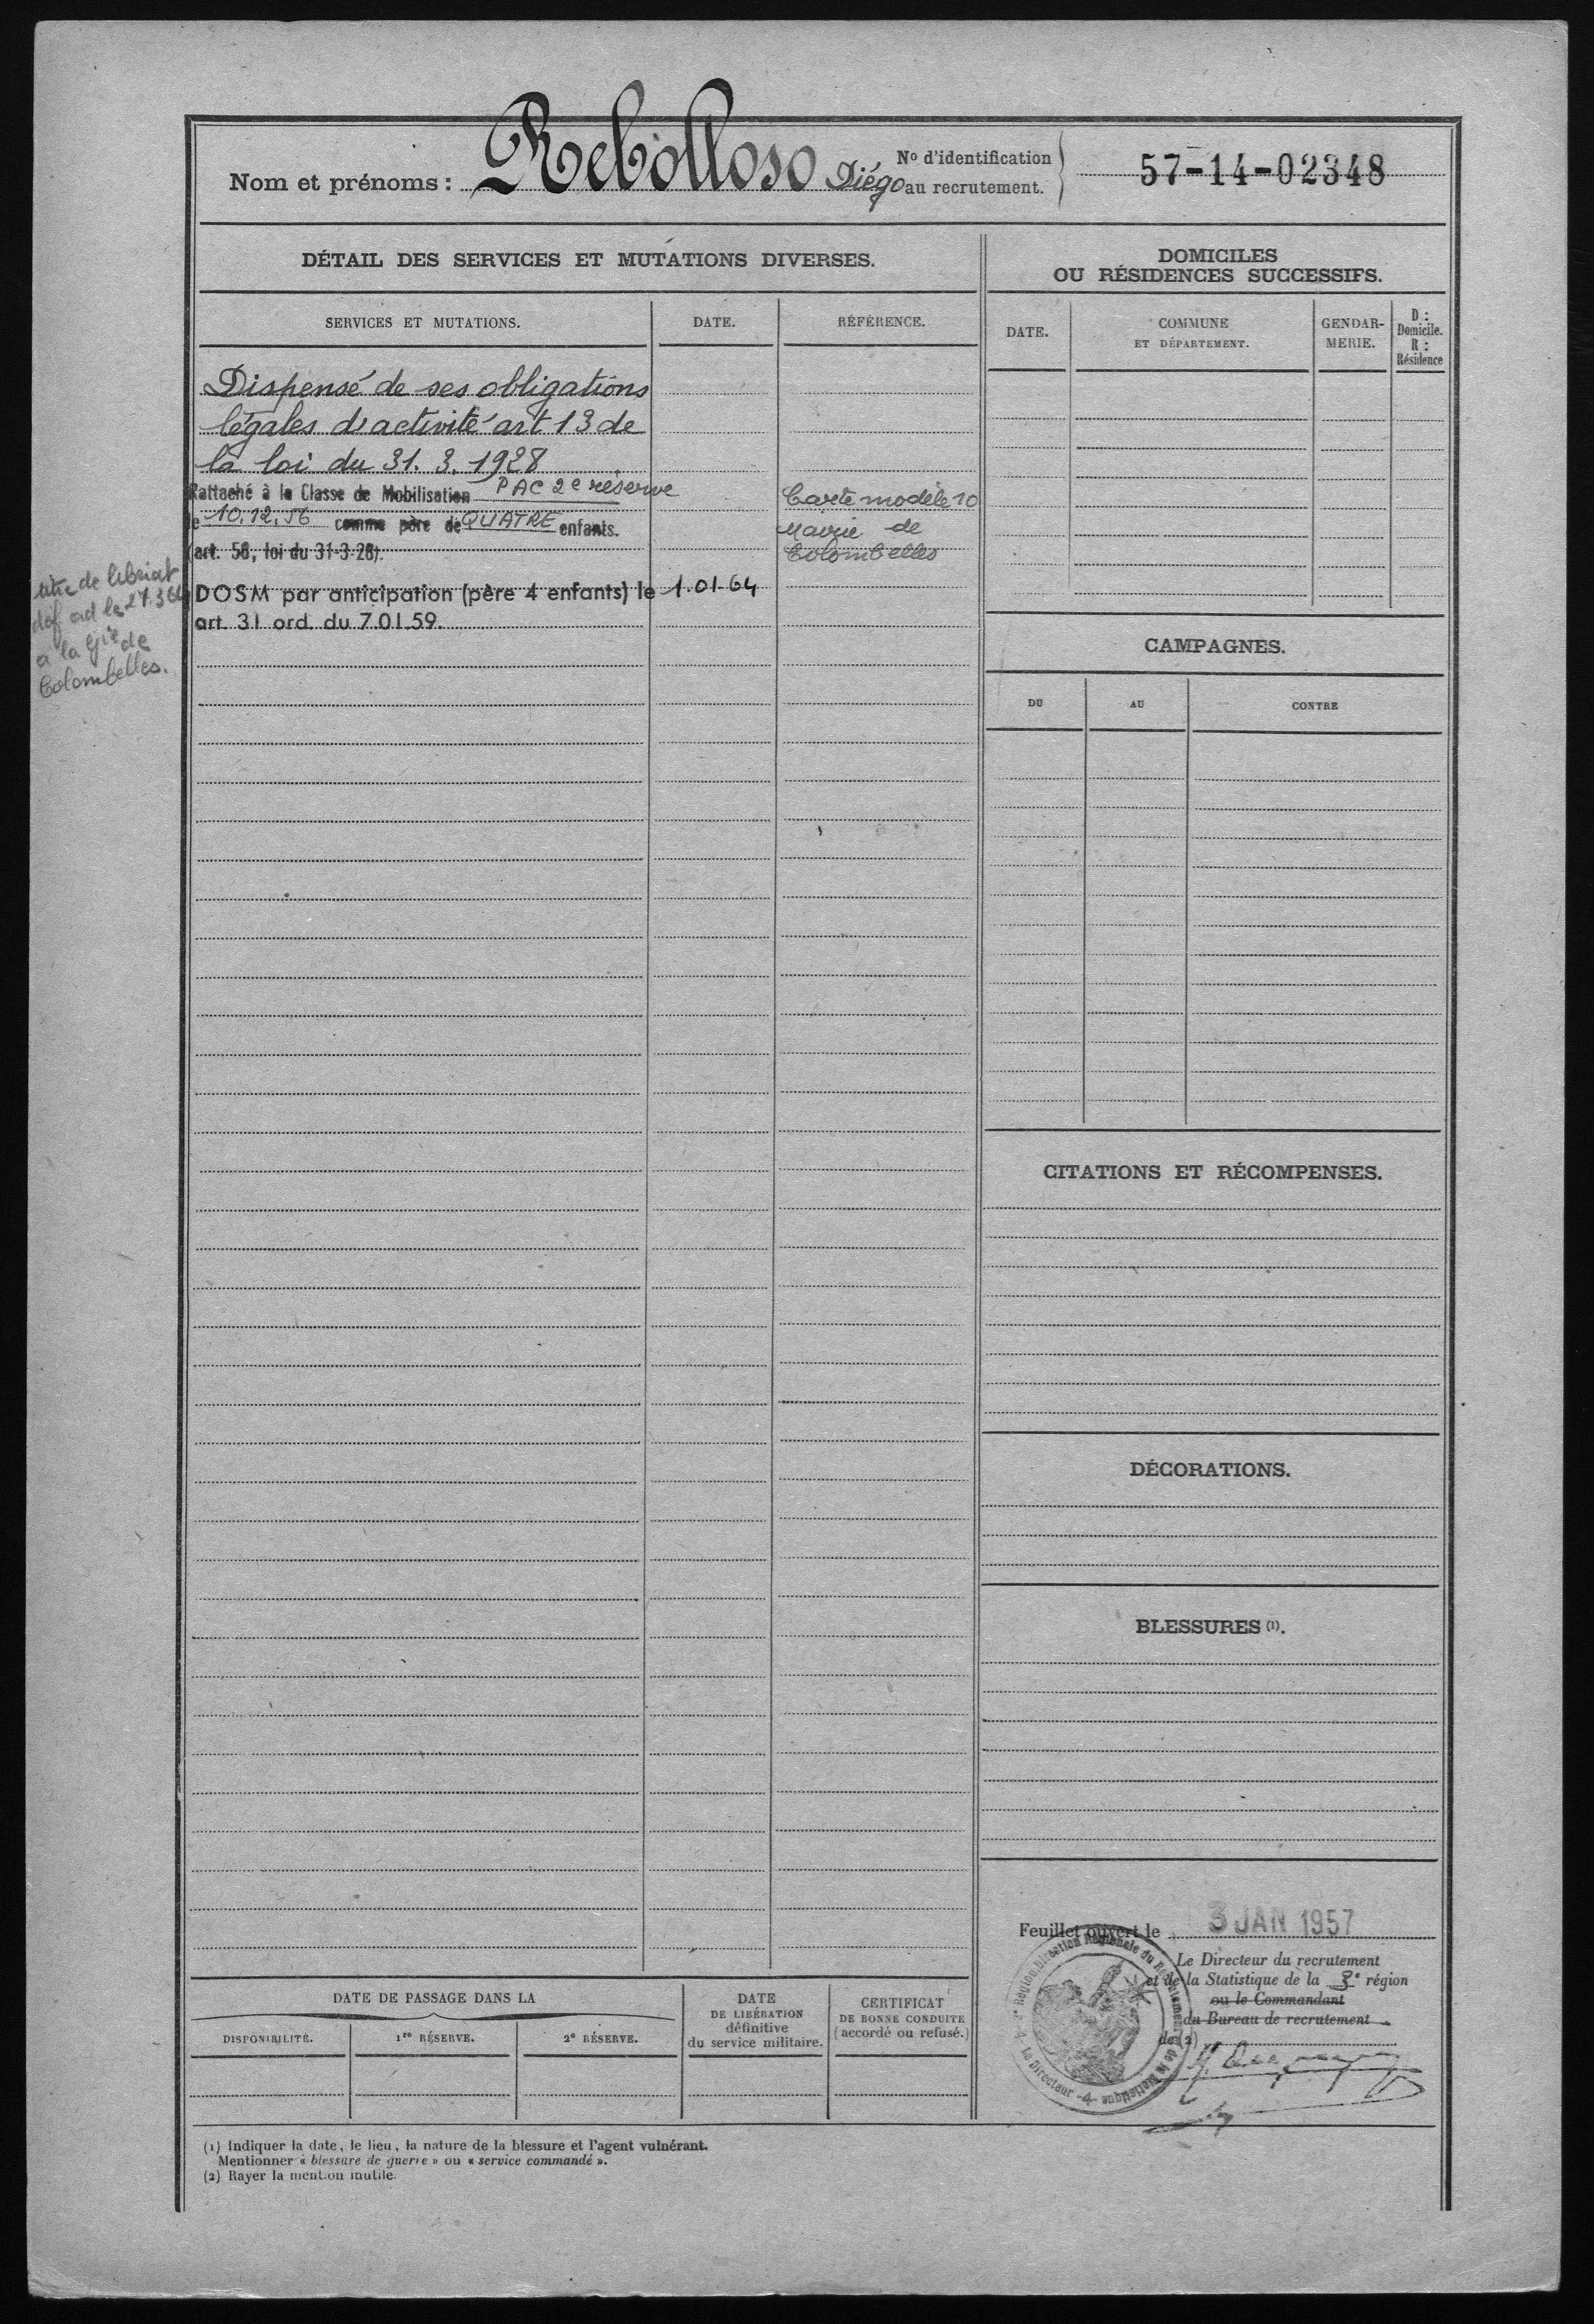 Nom et prénoms : Rebolloso Diégo
N° d'identification
au recrutement.
57-14-02348
DÉTAIL DES SERVICES ET MUTATIONS DIVERSES.
SERVICES ET MUTATIONS.
DATE.
RÉFÉRENCE.
Dispensé de ses obligations
légales d'activité art 13 de
la loi du 31. 3. 1928
Rattaché à la Classe de Mobilisation PAC 2e réserve
le 10.12.56 comme père de QUATRE enfants.
(art. 58, loi du 31-3-28).
Carte modèle 10
Mairie de
Colombelles
DOSM par anticipation (père 4 enfants) le 1.01-64
art. 31 ord. du 7.01.59.
titre de
def ad le
à la Gie de
Colombelles.
DOMICILES
OU RÉSIDENCES SUCCESSIFS.
DATE.
COMMUNE
ET DÉPARTEMENT.
GENDAR-
MERIE.
D :
Domicile.
R :
Résidence
CAMPAGNES.
DU
AU
CONTRE
CITATIONS ET RÉCOMPENSES.
DÉCORATIONS.
BLESSURES (1).
Feuillet ouvert le 3 JAN 1957
Le Directeur du recrutement
et de la Statistique de la 3e région
ou le Commandant
du Bureau de recrutement
de (2)
Région Direction Régionale du Recrutement de la Statistique
Le Directeur
DATE DE PASSAGE DANS LA
DISPONIBILITÉ.
1re RÉSERVE.
2e RÉSERVE.
DATE
DE LIBÉRATION
définitive
du service militaire.
CERTIFICAT
DE BONNE CONDUITE
(accordé ou refusé.)
(1) Indiquer la date, le lieu, la nature de la blessure et l'agent vulnérant.
Mentionner « blessure de guerre » ou « service commandé ».
(2) Rayer la mention inutile.